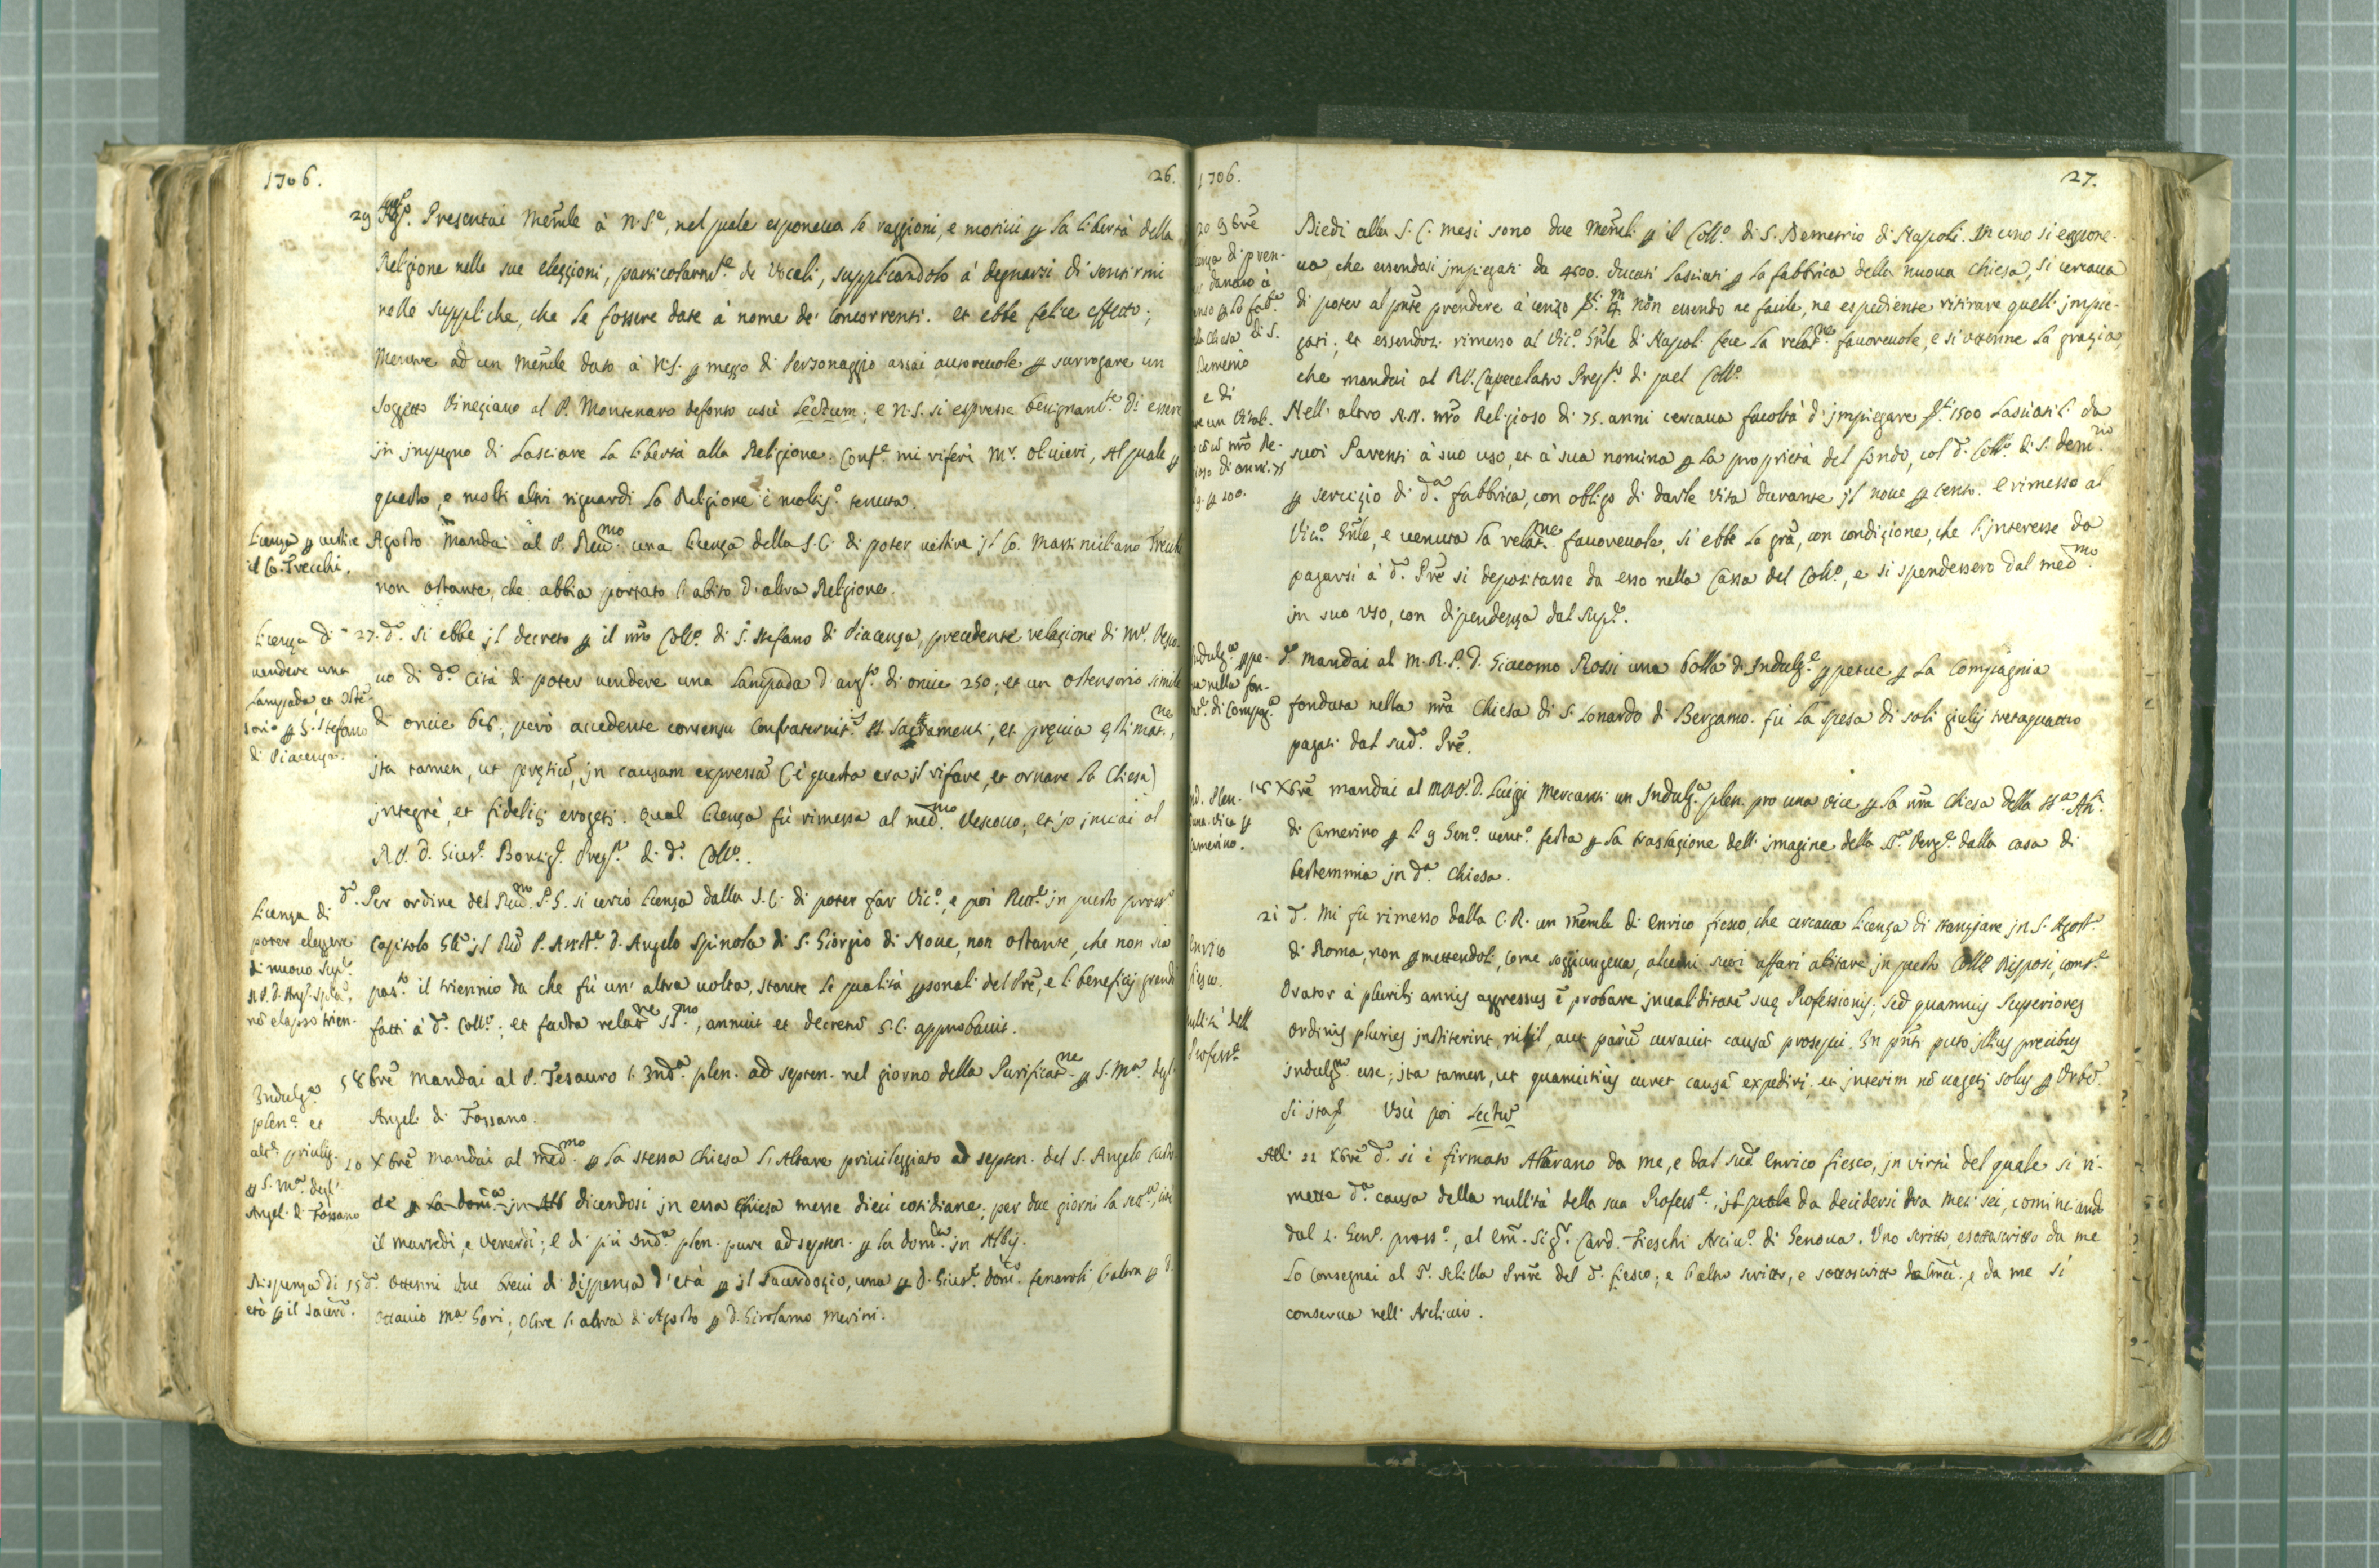 1706.
26.
29 Lug.º Presentai Memle à N. Sre, nel quale esponeua le raggioni, e motiui p la libertà della
Religione nelle sue elezzioni, particolarmte de Vocali, supplicandolo à degnarsi di sentirmi
nelle suppliche, che le fossero date à nome de' Concorrenti. et ebbe felice effetto;
Mentre ad un Memle dato à N.S. p mezzo di Personaggio assai autoreuole p surrogare un
soggetto Vineziano al P. Montenaro defonto uscì Lectum; e N.S. si espresse benignamte di essere
in impegno di Lasciare La libertà alla Religione. Conf.e mi riferì Mr. Oliuieri, Al quale p
questo, e molti altri riguardi la Religione è moltis.º tenuta.
Licenza p uestire
il Co. Trecchi.
Agosto Mandai al P. Reumo una licenza della S.C. di poter uestire il Co. Massimiliano Trecchi
non ostante, che abbia portato l'abito d'altra Religione.
Licenza di
uendere una
Lampada, et Oste-
sorio p S. Stefano
di Piacenza.
27. dº. Si ebbe il decreto p il nro Collº di S. Stefano di Piacenza, precedente relazione di Mr. Vesco-
uo di dª Cità di poter uendere una Lampada d'argto di oncie 250, et un ostensorio simile
di oncie 616, però accedente consensu Confraternitis SS. Sacramenti, et preuia estimatne,
ita tamen, ut pretiũ, in causam expressã (è questa era il rifare, et ornare la Chiesa)
integrè, et fidelitr erogetr. Qual licenza fù rimessa al medmo Vescouo, et io inuiai al
R.P. D. Gius.e Prepto di dº Collº.
Licenza di
poter eleggere
di nuouo Supre
il P. D. Ang. Spla,
nõ elapso trien.
dº. Per ordine del Reumo P.G. si cercò licenza dalla S.C. di poter far Vicº, e poi Rettre in questo prossº
Capitolo Gle il Reu P. Asste D. Angelo Spinola di S. Giorgio di Noue, non ostante, che non sia
pasto il triennio da che fù un' altra uolta, stante le qualità psonali del Pre, e li beneficij grandi
fatti à dº Collº; et facta relatne SSmo, annuit et decretũ S.C. approbauit.
Indulga
plen.a et
altre priuileg.
p S. Mª degl'
Angeli di Fossano
5 8bre Mandai al P. Tesauro l'Indª plen. ad septen. nel giorno della Purificatne p S. Mª degl'
Angeli di Fossano.
20 Xbre Mandai al medmo p la stessa Chiesa l'Altare priuileggiato ad septen. del S. Angelo Custo-
de p La domª in Alb dicendosi in essa Chiesa messe dieci cotidiane, per due giorni la settª, cioè
il martedì, e Venerdì; E di più Indª plen. pure ad septen. p la domca in Albis.
Dispenza di
età p il sacerd.
15 dº. Ottenni due breui di dispenza d'età p il Sacerdozio, uno p D. Gius.e Domº Fenaroli, l'altra p D.
Ottauio Mª Gori; Oltre l'altra di Agosto p D. Girolamo Merini.
1706.
27.
20 9bre
danaro à
p la fabª
Chiesa di S.
Demetrio
e di
un Vital.
nro Re-
di anni 75
p 200.
Diedi alla S.C. mesi sono due Memli p il Collº di S. Demetrio di Napoli. In uno si espone-
ua che essendosi impiegati da 4500. ducati lasciati p La fabbrica della nuoua Chiesa, si cercaua
di poter al pnte prendere à cenzo non essendo ne facile, ne espediente ritirare quelli impie-
gati; et essendosi rimesso al Vicº Gnle di Napoli fece La relatne fauoreuole, e si ottenne La grazia,
che mandai al R.P. Capecelatro Prepto di quel Collº.
Nell' altro N.N. nro Religioso di 75. anni cercaua facoltà di impiegare 1500 Lasciatili da
suoi Parenti à suo uso, et à sua nomina p La proprietà del fondo, col dº Collº di S. Demrio
p seruizio di dª fabbrica, con obligo di darle vita durante il noue p cento. E rimesso al
Vicº Gnle, e uenuta La relatne fauoreuole, si ebbe La gra, con condizione, che l'interesse da
pagarsi à dº Pre si depositasse da esso nella Cassa del Collº, e si spendessero dal medmo
in suo uso, con dipendenza dal Supre.
Indulga ppe-
nella fon-
di Compª
dº. Mandai al M.R.P. D. Giacomo Rossi una bolla di Indulge ppetue p La Compagnia
fondata nella nra Chiesa di S. Lonardo di Bergamo. fù La spesa di soli giulij tretaquattro
pagati dal sudº Pre.
Ind. Plen.
una vice p
Camerino.
18 Xbre mandai al M.R.P. D. Luigi Mercanti un Indulgª plen. pro una vice p La nra Chiesa della SSª Anª
di Camerino p li 9 Genº uentº festa p La traslazione dell'imagine della Sª Vergne dalla casa di
bestemmia in dª Chiesa.
Enrico
Fiesco.
nullità dell
Professe
21 dº. Mi fu rimesso dalla C.R. un memle di Enrico Fiesco, che cercaua Licenza di stanziare in S. Agostº
di Roma, non pmettendoli, come soggiungeua, alcuni suoi affari abitare in questo Collº Risposi, conf.e
Orator à pluribs annis aggressus ẽ probare inualiditatẽ suę Professionis; Sed quamuis Superiores
Ordinis pluries institerint, nihil, aut parũ curauit causã prosequi. In pnti puto illius precibus
indulgm esse; ita tamen, ut quamcitius curet causã expediri, et interim nõ uagetr solus p Urbẽ.
Uscì poi Lectũ
Alli 22 Xbre dº si è firmato Albarano da me, e dal sudº Enrico Fiesco, in virtù del quale si ri-
mette dª causa della nullità della sua Professe, il quale da decidersi tra mesi sei, cominciando
dal L. Genº prossº, al Em. Sigr Card. Fieschi Arciuº di Genoua. Uno scritto, e sottoscritto da me
Lo consegnai al Sr Sililla del Sr Fiesco; e l'altro scritto, e sottoscritto e da me si
conserua nell' Archiuio.